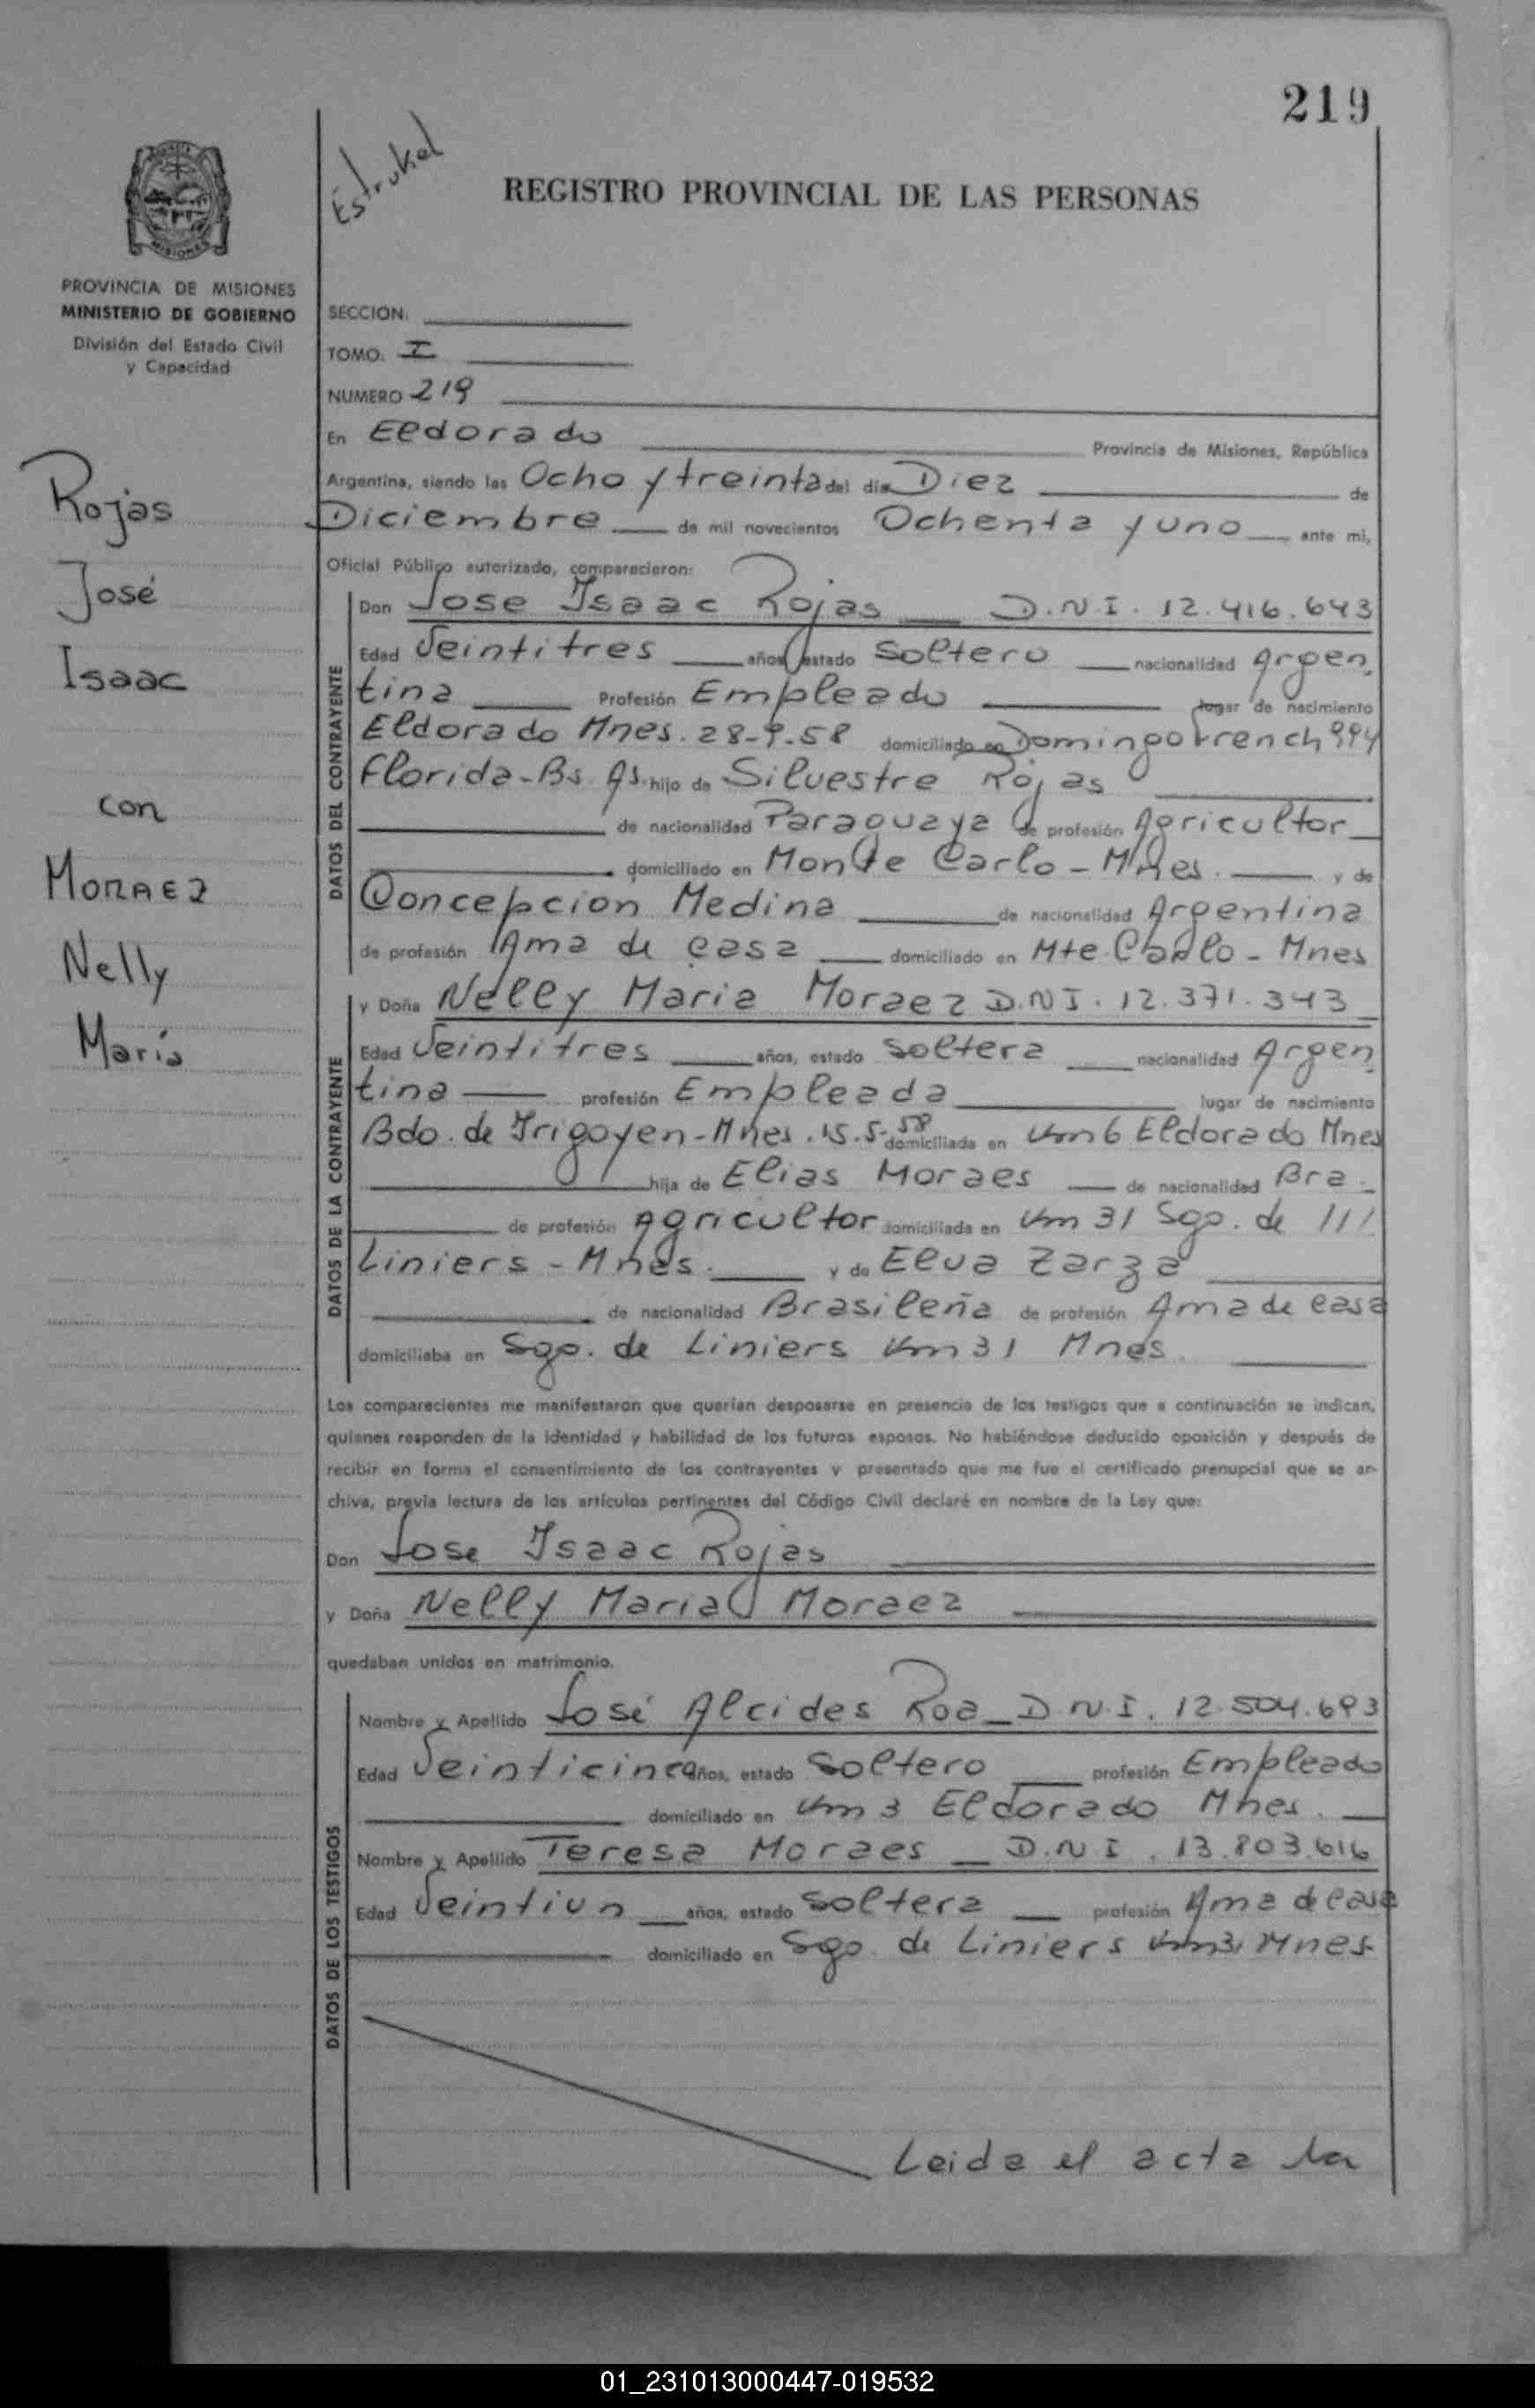 219
Estrukel
REGISTRO PROVINCIAL DE LAS PERSONAS
MISIONES
PROVINCIA DE MISIONES
MINISTERIO DE GOBIERNO
División del Estado Civil
y Capacidad
SECCION.
TOMO. I
NUMERO 219
En Eldorado Provincia de Misiones, República
Argentina, siendo las Ocho y treinta del día Diez de
Diciembre de mil novecientos Ochenta y uno ante mi,
Oficial Público autorizado, comparecieron:
Rojas
José
Isaac
con
MORAEZ
Nelly
María
DATOS DEL CONTRAYENTE
Don Jose Isaac Rojas D.N.I. 12.416.643
Edad Veintitres años, estado Soltero nacionalidad Argen
tina Profesión Empleado lugar de nacimiento
Eldorado Mnes. 28-9-58 domiciliado en Domingo French 994
Florida-Bs As. hijo de Silvestre Rojas
de nacionalidad Paraguaya de profesión Agricultor
domiciliado en Monte Carlo - Mnes. y de
Concepcion Medina de nacionalidad Argentina
de profesión Ama de casa domiciliado en Mte. Carlo - Mnes
DATOS DE LA CONTRAYENTE
y Doña Nelly Maria Moraez D.N.I. 12.371.343
Edad Veintitres años, estado Soltera nacionalidad Argen
tina profesión Empleada lugar de nacimiento
Bdo. de Irigoyen-Mnes. 15.5.58 domiciliada en Km 6 Eldorado Mnes
hija de Elias Moraes de nacionalidad Bra.
de profesión Agricultor domiciliada en Km 31 Sgo. de ///
Liniers - Mnes. y de Elva Zarza
de nacionalidad Brasileña de profesión Ama de casa
domiciliaba en Sgo. de Liniers Km 31 Mnes.
Los comparecientes me manifestaron que querían desposarse en presencia de los testigos que a continuación se indican,
quienes responden de la identidad y habilidad de los futuros esposos. No habiéndose deducido oposición y después de
recibir en forma el consentimiento de los contrayentes y presentado que me fue el certificado prenupcial que se ar-
chiva, previa lectura de los artículos pertinentes del Código Civil declaré en nombre de la Ley que:
Don Jose Isaac Rojas
y Doña Nelly Maria Moraez
quedaban unidos en matrimonio.
DATOS DE LOS TESTIGOS
Nombre y Apellido José Alcides Roa D.N.I. 12.504.693
Edad Veinticinco años, estado Soltero profesión Empleado
domiciliado en Km 3 Eldorado Mnes.
Nombre y Apellido Teresa Moraes D.N.I. 13.803.616
Edad Veintiun años, estado Soltera profesión Ama de casa
domiciliado en Sgo. de Liniers Km 31 Mnes.
Leida el acta la
01_231013000447-019532